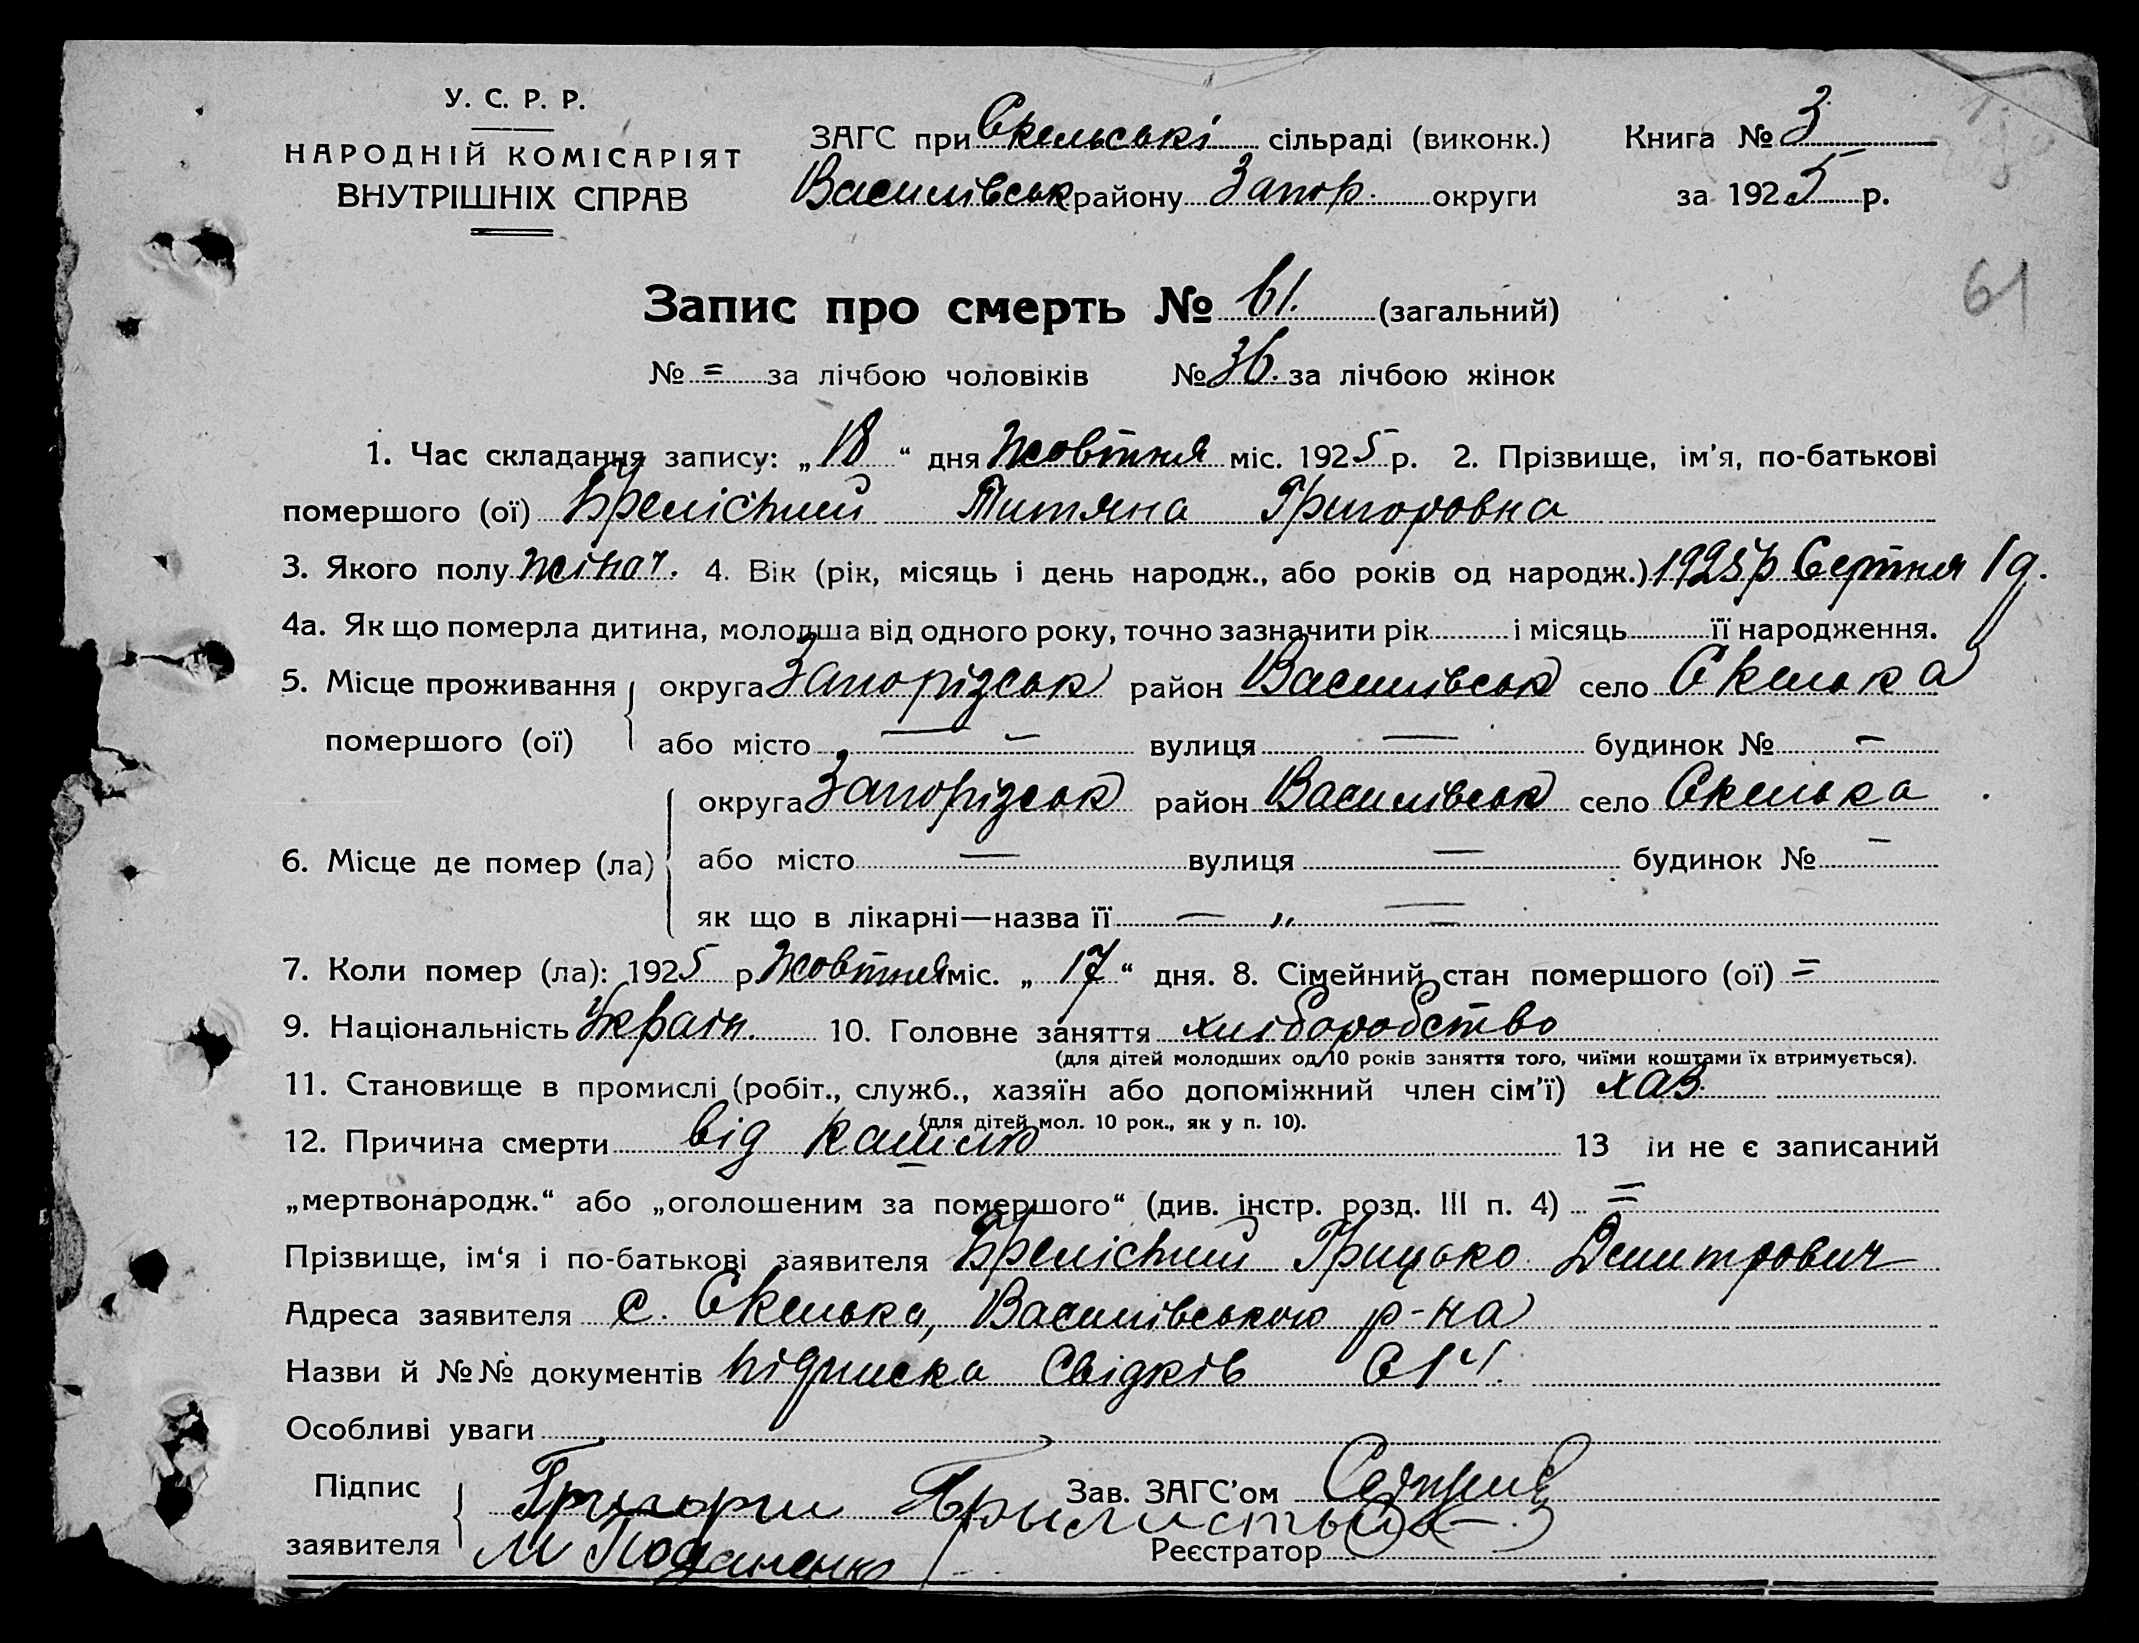 У. С. Р. Р.
НАРОДНІЙ КОМІСАРІЯТ
ВНУТРІШНІХ СПРАВ
ЗАГС при Скельські сільраді (виконк.)
Василівськ району Запор. округи
Книга № 3
за 1925 р.
61
Запис про смерть № 61. (загальний)
№ = за лічбою чоловіків № 36. за лічбою жінок
1. Час складання запису: „18“ дня Жовтня міс. 1925 р. 2. Прізвище, ім'я, по-батькові
помершого (ої) Григоровна
3. Якого полу жіноч. 4. Вік (рік, місяць і день народж., або років од народж.) 1925 р Серпня 1 д.
4а. Як що померла дитина, молодша від одного року, точно зазначити рік і місяць її народження.
5. Місце проживання помершого (ої) округа Запорізськ район Василівськ село Скелька
або місто — — вулиця — будинок № —
6. Місце де помер (ла) округа Запорізськ район Василівськ село Скелька
або місто — вулиця — будинок № —
як що в лікарні—назва її — „ —
7. Коли помер (ла): 1925 р. Жовтня міс. „17“ дня. 8. Сімейний стан помершого (ої) =
9. Національність Україн. 10. Головне заняття хліборобство
(для дітей молодших од 10 років заняття того, чиїми коштами їх втримується).
11. Становище в промислі (робіт., служб., хазяїн або допоміжний член сім'ї) хаз.
(для дітей мол. 10 рок., як у п. 10).
12. Причина смерти від кашлю 13 и не є записаний
„мертвонародж.“ або „оголошеним за помершого“ (див. інстр. розд. III п. 4) =
Прізвище, ім‘я і по-батькові заявителя Грицько Дмитрович
Адреса заявителя с. Скелька, Василівського р-на
Назви й №№ документів підписка свідків
Особливі уваги
Підпис заявителя Григори Брылистый
Зав. ЗАГС'ом
Реєстратор